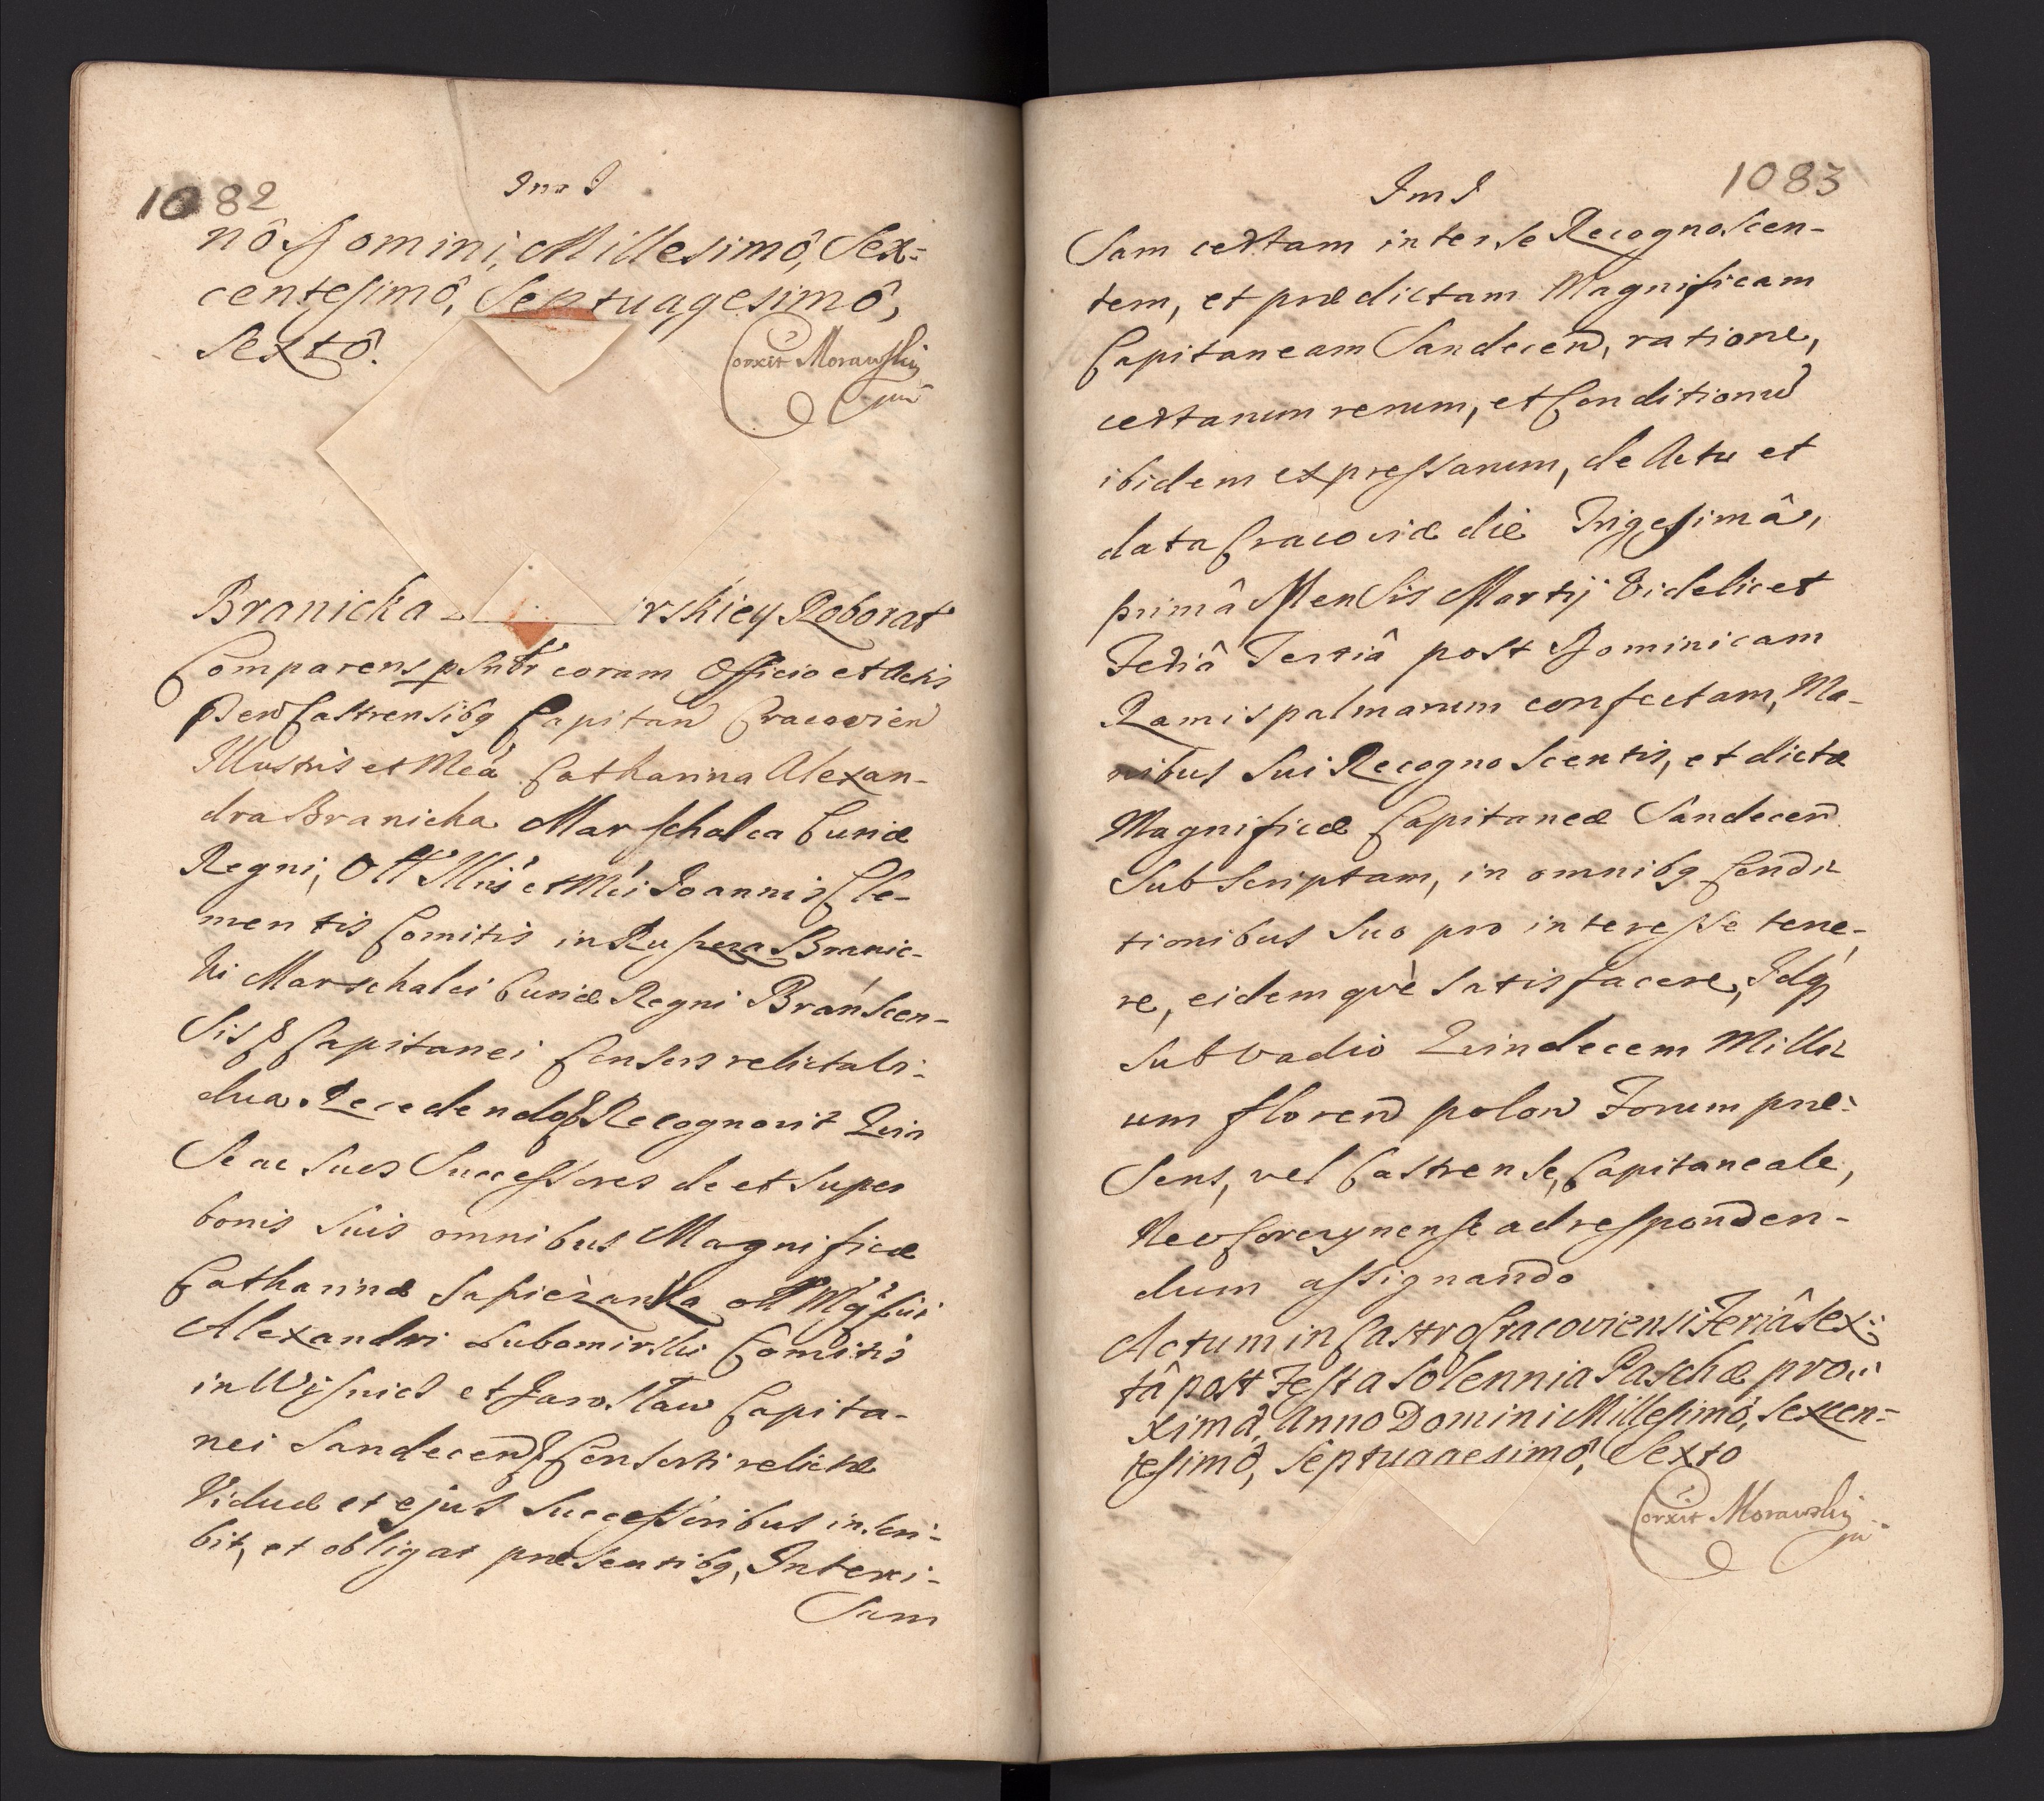 1082
ImJ
nô Domini, Millesimô, Sex=
centesimô, Septuagesimô,
Sextô.
Corxit Morawskj
mp
Branicka L rskiey Roborat
Comparens psnlr coram Officio et Actis
Pen Castrensibq Capitan Cracovien
Illustris et Mcâ Catharina Alexan-
dra Branicka Marschalca Curiæ
Regni, Olt Illris et Mci Joannis Cle-
mentis Comitis in Ruscza Branic-
ki Marschalci Curiæ Regni Branscen-
sis & Capitanei Consors relicta Vi-
dua. Recedendo & Recognovit Quia
Se ac Suos Successores de et super
bonis suis omnibus Magnificæ
Catharinæ Sapiezanka olt Mgci
Alexandri Lubomirski Comitis
in Wisnicz et Jarosław Capita-
nei Sandecen & Consorti relictæ
Viduæ et ejus Successoribus inscri-
bit, et obligat præsentibq, Interci-
Sam
1083
ImJ
Sam certam inter se Recognoscen-
tem, et prædictam Magnificam
Capitaneam Sandecen, ratione,
certarum rerum, et Conditionu
ibidem expressarum, de Actu et
data Cracoviæ die Trigesimâ,
primâ Mensis Martij Videlicet
Feriâ Tertiâ post Dominicam
Ramispalmarum confectam, Ma-
nibus sui Recognoscentis, et dictæ
Magnificæ Capitaneæ Sandecen
Subscriptam, in omnibq Condi-
tionibus suo pro interesse tene-
re, eidemquè satisfacere, Idq
sub vadio Quindecem Milli-
um floren polon Forum præ-
sens, vel Castrense, Capitaneale,
Neo Corczynense ad responden-
dum assignando
Actum in Castro Cracoviensi Feriâ Sex=
tâ post Festa Solennia Paschæ pro=
ximâ, Anno Domini Millesimô, Sexcen=
tesimô, Septuagesimô, Sexto
Corxit Morawskj
mp